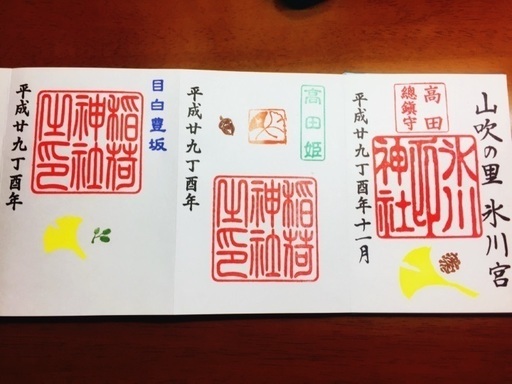 山吹の里 氷川宮
高田
總鎮守
氷川
神社
平成廿九丁酉年十一月
高田姫
稲荷
神社
之印
平成廿九丁酉年
目白豊坂
稲荷
神社
之印
平成廿九丁酉年